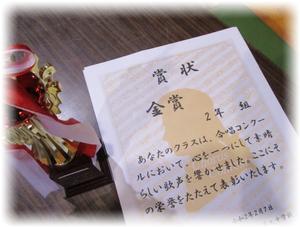 賞状
金賞
2年 組
あなたのクラスは、合唱コンクー
ルにおいて、心を一つにして素晴
らしい歌声を響かせました。ここにそ
の栄誉をたたえて表彰いたします。
令和2年2月7日